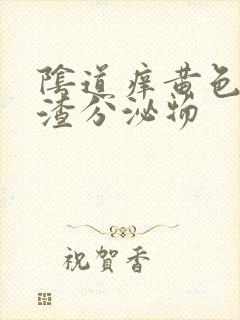 陰道痒黄色
渣分泌物
祝賀香